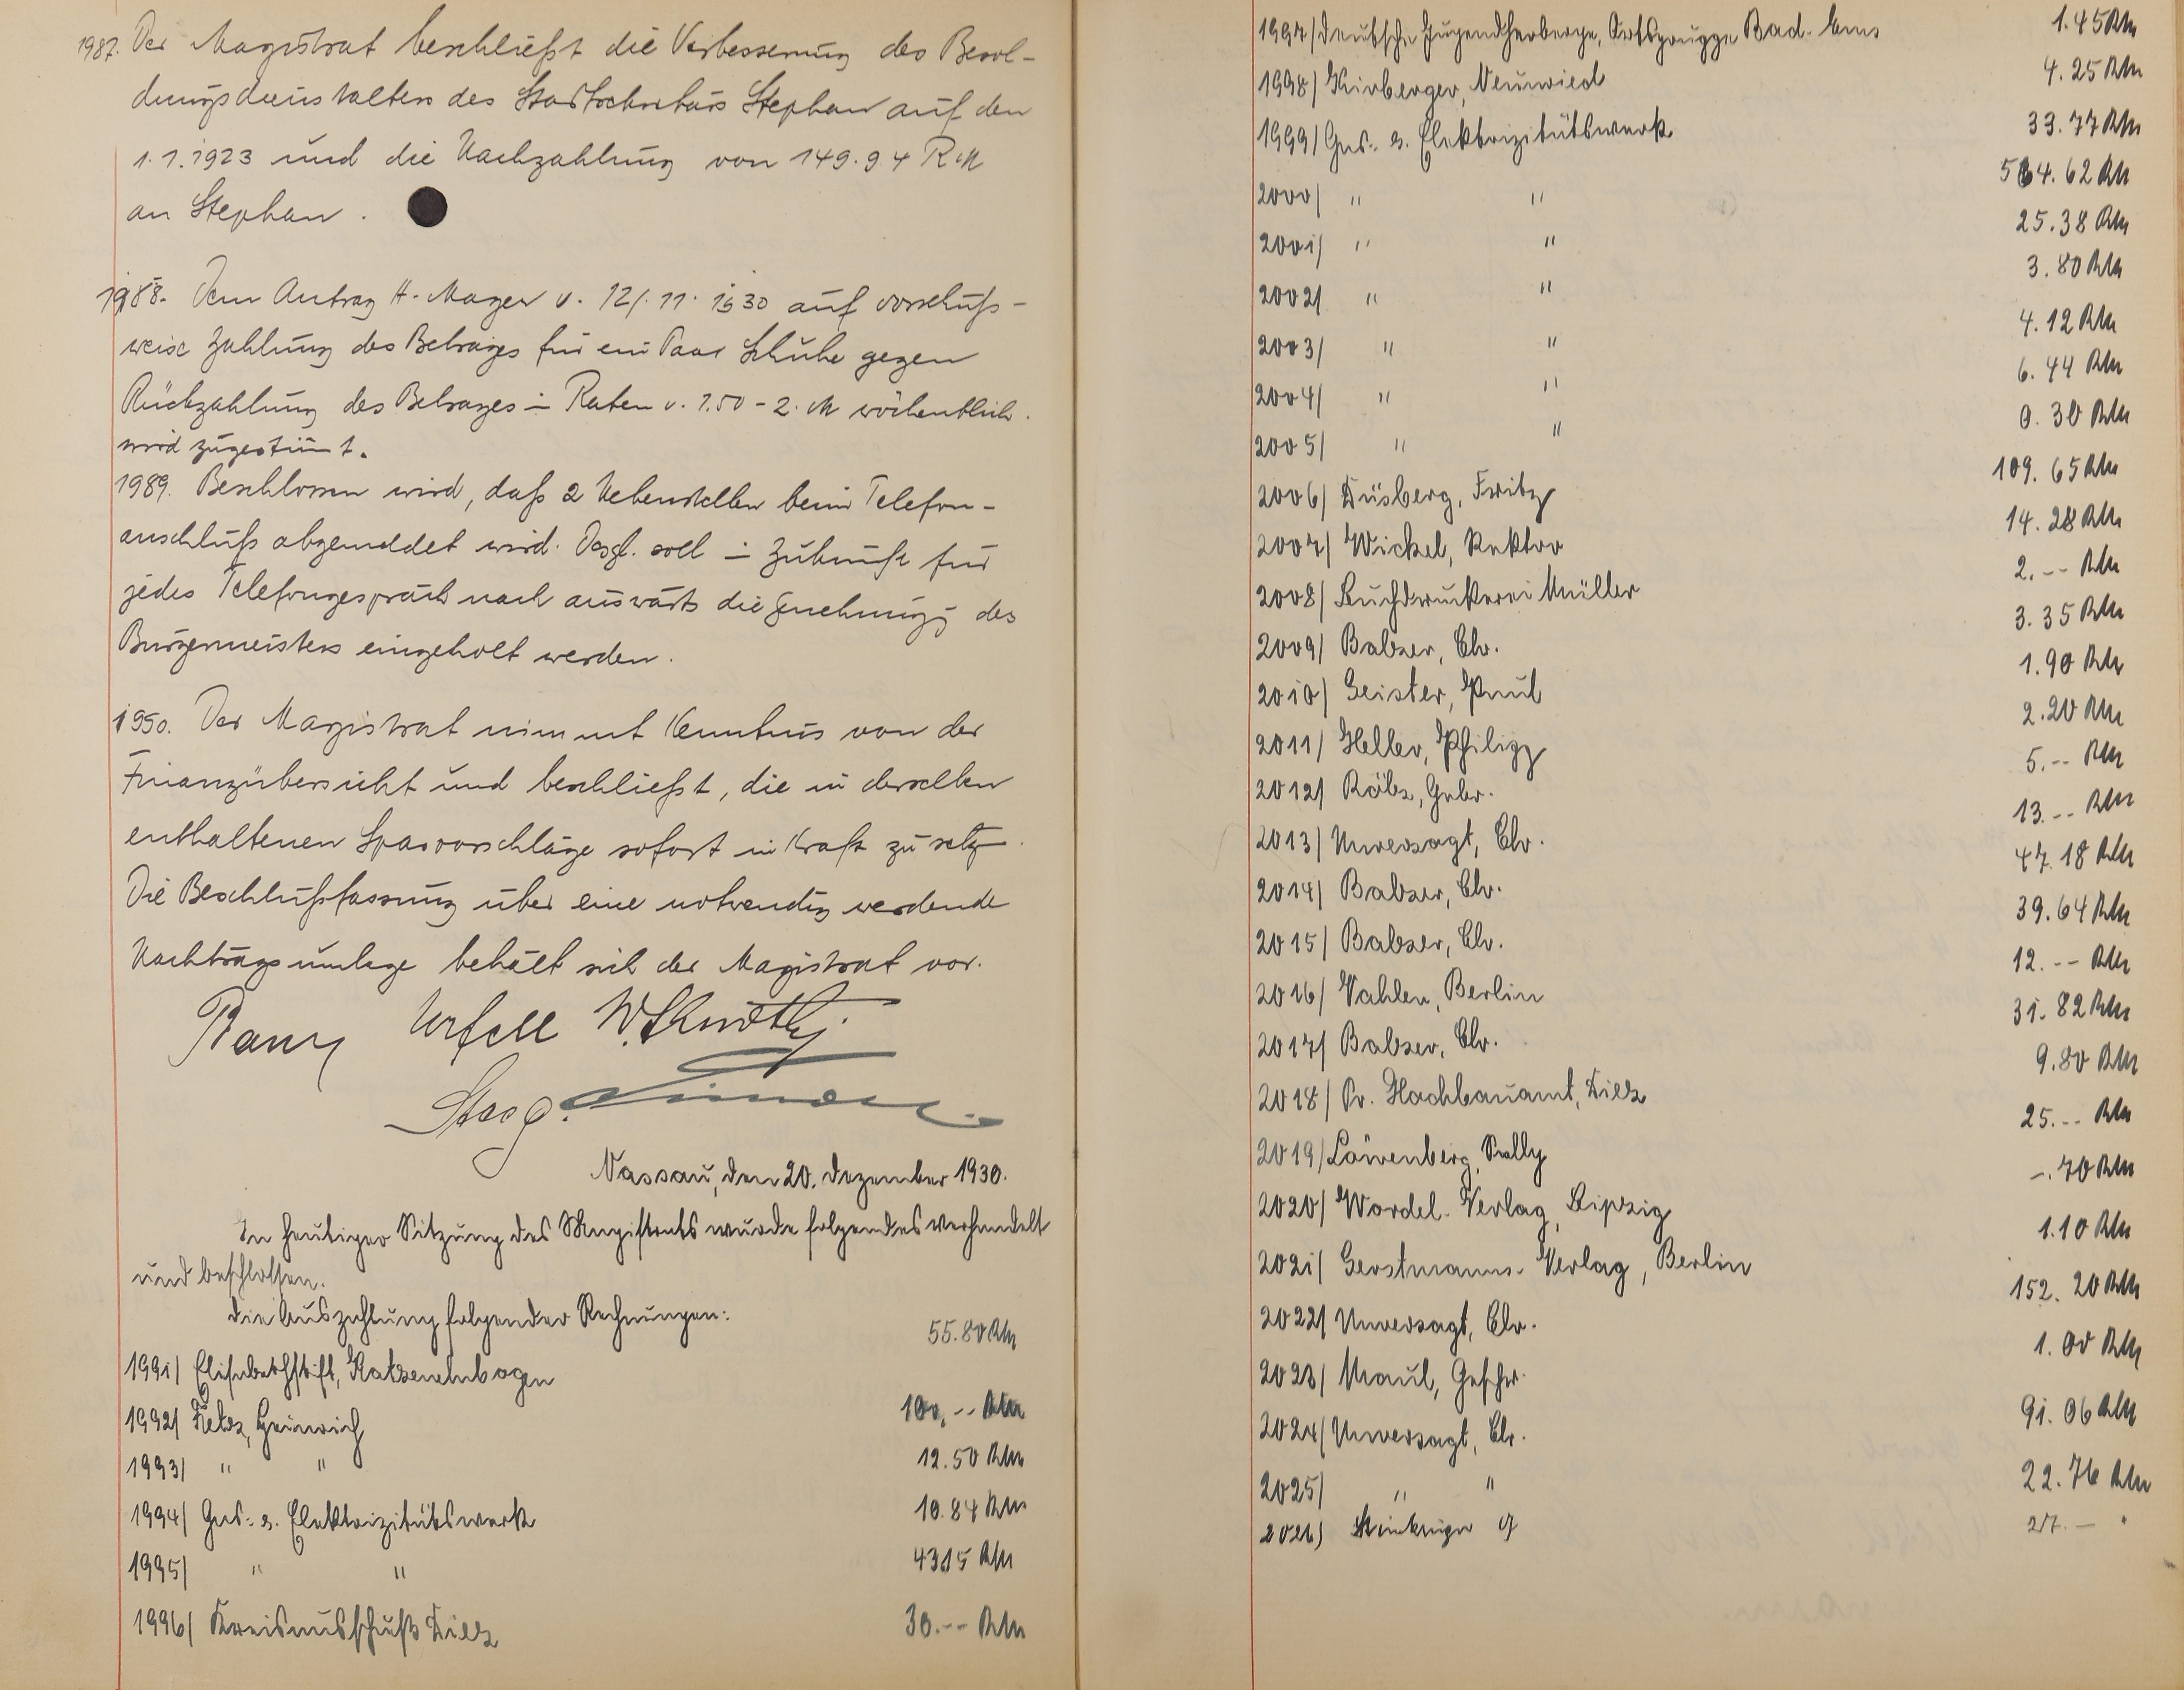 1987. Der Magistrat beschließt die Verbesserung des Besol-
dungsdienstalters des Stadtsekretärs Stephan auf den
1.1.1923 und die Nachzahlung von 149.94 RM
an Stephan.
1988. Dem Antrag H. Mayer v. 12/.11.1930 auf vorschuß-
weise Zahlung des Betrages für ein Paar Schuhe gegen
Rückzahlung des Betrages in Raten v. 1.50 - 2. M wöchentlich.
wird zugestimmt.
1989. Beschlossen wird, daß 2 Nebenstellen beim Telefon-
anschluß abgemeldet wird. Desgl. soll in Zukunft für
jedes Telefongespräch nach auswärts die Genehmigung des
Bürgermeisters eingeholt werden.
1990. Der Magistrat nimmt Kenntnis von der
Finanzübersicht und beschließt, die in derselben
enthaltenen Sparvorschläge sofort in Kraft zu setzen.
Die Beschlußfassung über eine notwendig werdende
Nachtragsumlage behält sich der Magistrat vor.
Nassau, den 20. Dezember 1930.
In heutiger Sitzung des Magistrats wurde folgendes verhandelt
und beschlossen.
Die Auszahlung folgender Rechnungen:
1991/ Elisabethstift, Katzenelnbogen 55.80 RM
1992/ Heinrich 100,-- RM
1993/ " " 12.50 RM
1994/ Gas- u. Elektrizitätswerk 10.84 RM
1995/ " " 43.15 RM
1996/ Kreisausschuß Diez 30.-- RM
1997/ Deutsche Jugendherberge, Ortsgruppe Bad-Ems 1.45 RM
1998/ Kirberger, Neuwied 4.25 RM
1999/ Gas- u. Elektrizitätswerk 33.77 RM
2000/ " " 564.62 RM
2001/ " " 25.38 RM
2002/ " " 3.80 RM
2003/ " " 4.12 RM
2004/ " " 6.44 RM
2005/ " " 0.30 RM
2006/ Düsberg, Fritz 109.65 RM
2007/ Wickel, Rektor 14.28 RM
2008/ Buchdruckerei Müller 2.-- RM
2009/ Balzer, Chr. 3.35 RM
2010/ Geister, Paul 1.90 RM
2011/ Heller, Philipp 2.20 RM
2012/ Gebr. 5.-- RM
2013/ Unversagt, Chr. 13.-- RM
2014/ Balzer, Chr. 47.18 RM
2015/ Balzer, Chr. 39.64 RM
2016/ Vahlen, Berlin 12.-- RM
2017/ Balzer, Chr. 31.82 RM
2018/ Pr. Hochbauamt, Diez 9.80 RM
2019/ Löwenberg, Sally 25.-- RM
2020/ Verlag, Leipzig -.70 RM
2021/ Gerstmanns-Verlag, Berlin 1.10 RM
2022/ Unversagt, Chr. 152.20 RM
2023/ Maul, Geschw. 1.00 RM
2024/ Unversagt, Chr. 91.06 RM
2025/ " " 22.76 RM
2026) 27.- "